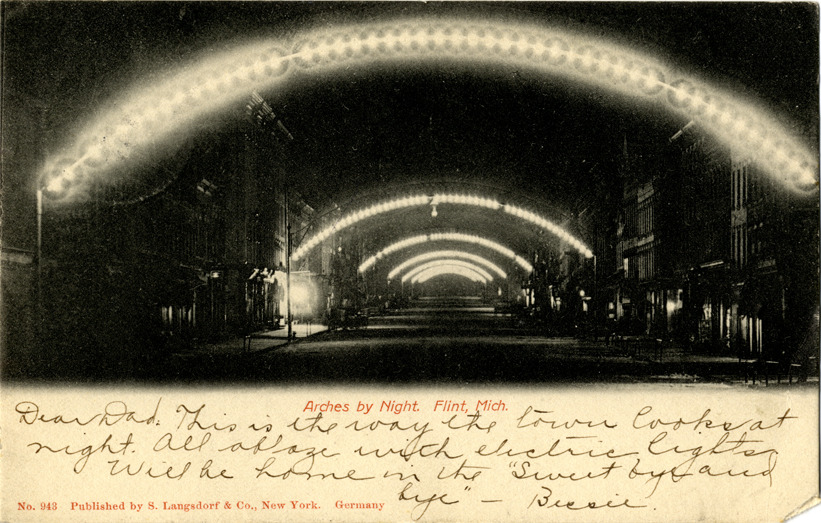 Arches by Night. Flint, Mich.
Dear Dad: This is the way the town looks at
night. All ablaze with electric lights
Will be home in the "Sweet bye and
bye" — Bessie.
No. 943 Published by S. Langsdorf & Co., New York. Germany